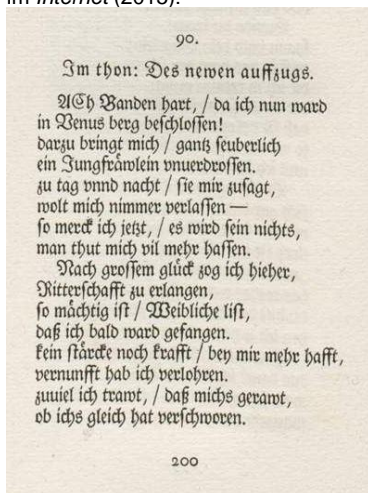 im Internet (2015).
90.
Im thon: Des newen auffzugs.
ACh Banden hart, / da ich nun ward
in Venus berg beschlossen!
darzu bringt mich / gantz seuberlich
ein Jungfråwlein vnuerdrossen.
zu tag vnnd nacht / sie mir zusagt,
wolt mich nimmer verlassen —
so merck ich jetzt, / es wird sein nichts,
man thut mich vil mehr hassen.
Nach grossem glück zog ich hieher,
Ritterschafft zu erlangen,
so mächtig ist / Weibliche list,
daß ich bald ward gefangen.
kein stårcke noch krafft / bey mir mehr hafft,
vernunfft hab ich verlohren.
zuuiel ich trawt, / daß michs gerawt,
ob ichs gleich hat verschworen.
200